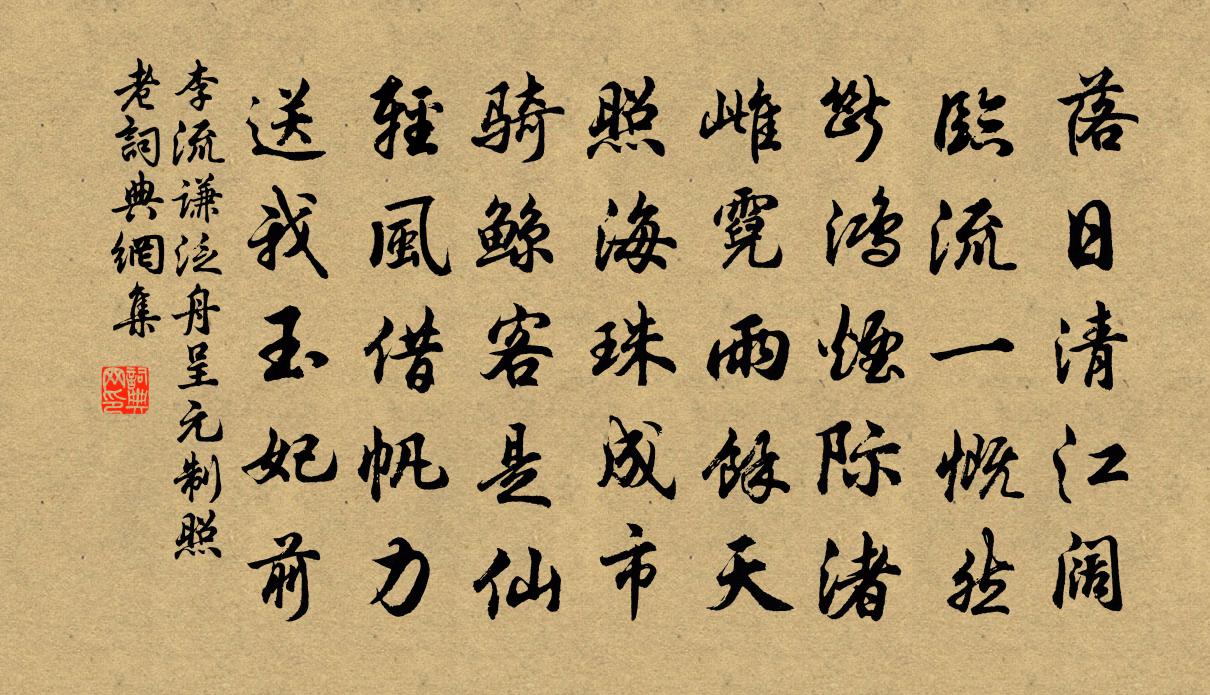 落日清江阔
臨流一慨然
斷鴻煙际渚
雌霓雨餘天
照海珠成市
骑鲸客是仙
輕風借帆力
送我玉妃前
李流谦泛舟呈元制照
老詞典網集
詞典网印